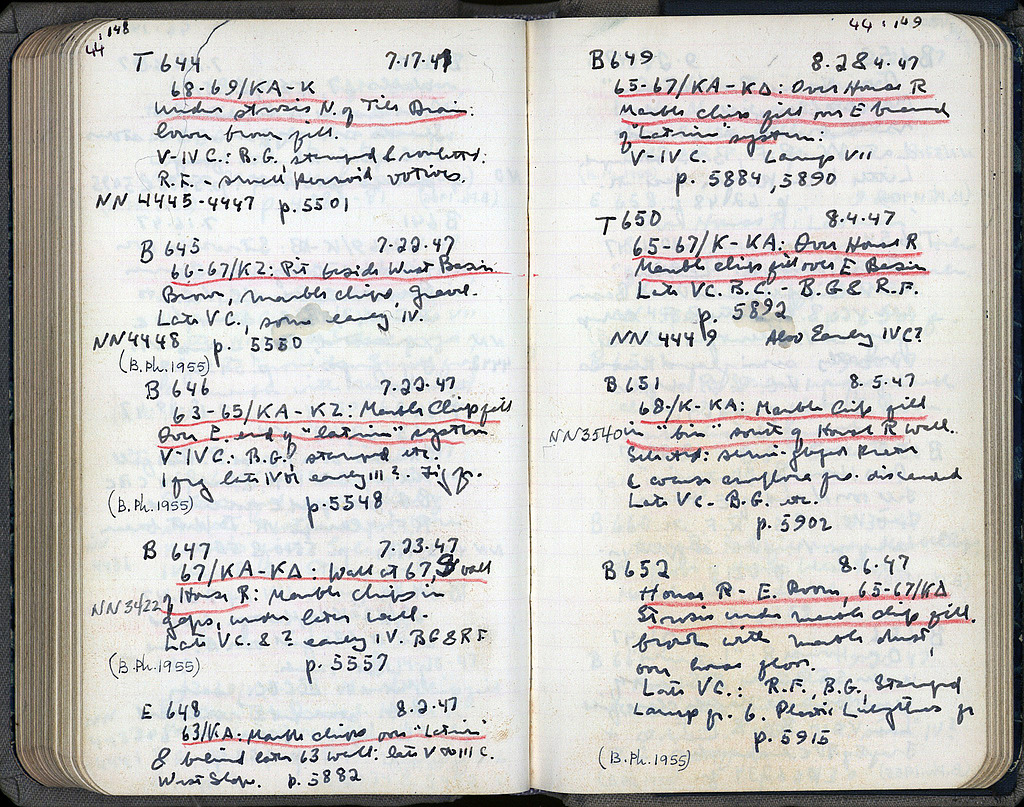 44:148
T 644 7.17.47
68-69/KA-K
under strosis N. of Tile Drain:
lower brown fill.
V-IV C.: B.G. stamped & rouletted.
R.F. - small kernoid votives.
NN 4445-4447 p. 5501
B 645 7.22.47
66-67/KZ: Pit beside West Basin
Brown, marble chips, gravel.
Late V C., some early IV.
NN4448 p. 5550
(B.Ph.1955)
B 646 7.22.47
63-65/KA-KZ: Marble Chip fill
Over E. end of "latrine" system
V-IV C.: B.G. stamped etc.
1 frg late IV or early III?
(B.Ph.1955) p. 5548
B 647 7.23.47
67/KA-KΔ: Wall at 67, S wall
NN3422 of House R: Marble chips in
gaps, under later wall.
Late V C. & ? early IV. BG & RF
(B.Ph.1955) p. 5557
E 648 8.2.47
63/KA: Marble chips over "latrine"
& behind later 63 wall: late V to III C.
West Slope. p. 5882
44:149
B 649 8.2&4.47
65-67/KA-KΔ: Over House R
Marble Chips fill over E branch
of "Latrine" system:
V-IV C. Lamp VII
p. 5884, 5890
T 650 8.4.47
65-67/K-KA: Over House R
Marble chips fill over E Basin
Late V C. B.C. - B.G & R.F.
p. 5892
NN 4449 Also Early IV C?
B 651 8.5.47
68/K-KA: Marble Chip fill
NN3540 in "bin" south of House R wall.
Selected: semi-glazed krater
& coarse amphora frs. discarded
Late V C - B.G. etc.
p. 5902
B 652 8.6.47
House R - E. Room, 65-67/KΔ
Strosis under marble chip fill.
brown with marble dust,
over house floor.
Late V C.: R.F., B.G., Stamped
Lamp fr. 6. Plastic Lekythos fr
p. 5915
(B.Ph.1955)